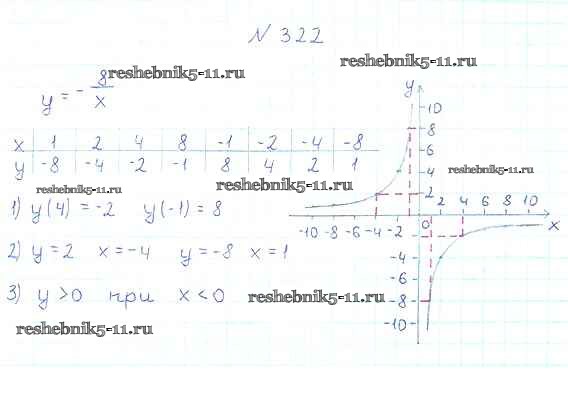 N 322
reshebnik5-11.ru
reshebnik5-11.ru
y = - 8/x
x 1 2 4 8 -1 -2 -4 -8
y -8 -4 -2 -1 8 4 2 1
reshebnik5-11.ru
reshebnik5-11.ru
reshebnik5-11.ru
1) y(4) = -2 y(-1) = 8
2) y = 2 x = -4 y = -8 x = 1
3) y > 0 при x < 0
reshebnik5-11.ru
reshebnik5-11.ru
y
10
8
6
4
2
-10 -8 -6 -4 -2 0 2 4 6 8 10 x
-4
-6
-8
-10